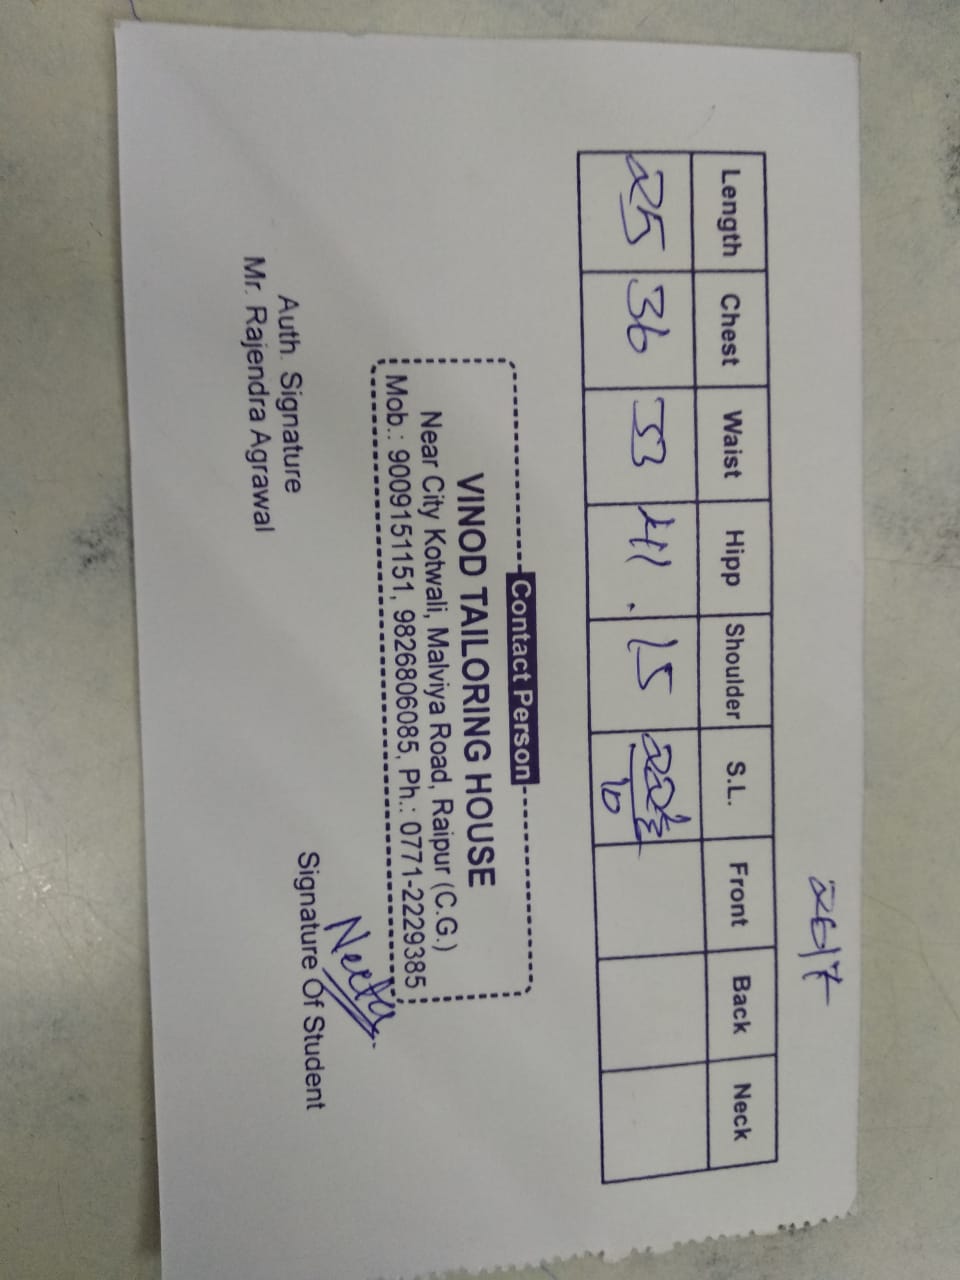 2617
Length Chest Waist Hipp Shoulder S.L. Front Back Neck
25 36 33 41. 15
10
Contact Person
VINOD TAILORING HOUSE
Near City Kotwali, Malviya Road, Raipur (C.G.)
Mob.: 9009151151, 9826806085, Ph.: 0771-2229385
Neeta
Auth. Signature
Signature Of Student
Mr. Rajendra Agrawal